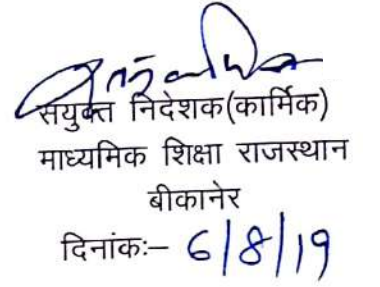 संयुक्त निदेशक(कार्मिक)
माध्यमिक शिक्षा राजस्थान
बीकानेर
दिनांकः– 6/8/19